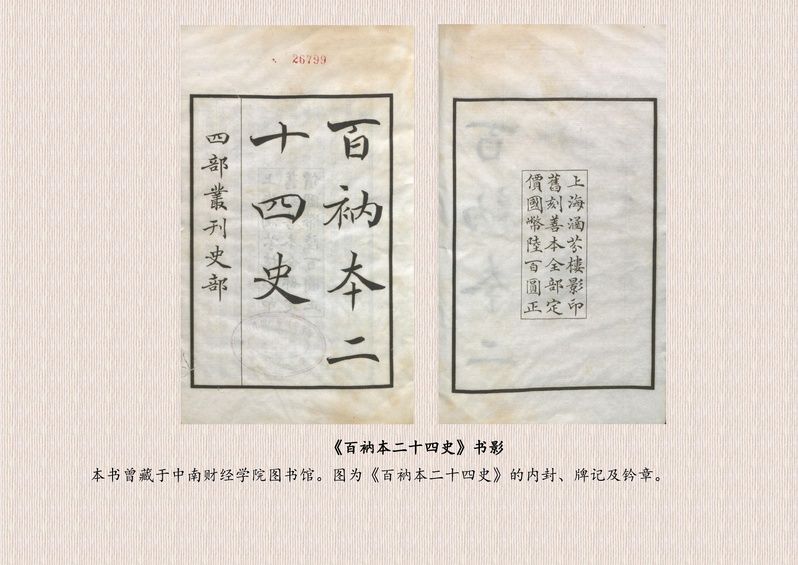 26799
百衲本二
十四史
四部叢刊史部
上海涵芬樓影印
舊刻善本全部定
價國幣陸百圓正
《百衲本二十四史》书影
本书曾藏于中南财经学院图书馆。图为《百衲本二十四史》的内封、牌记及钤章。